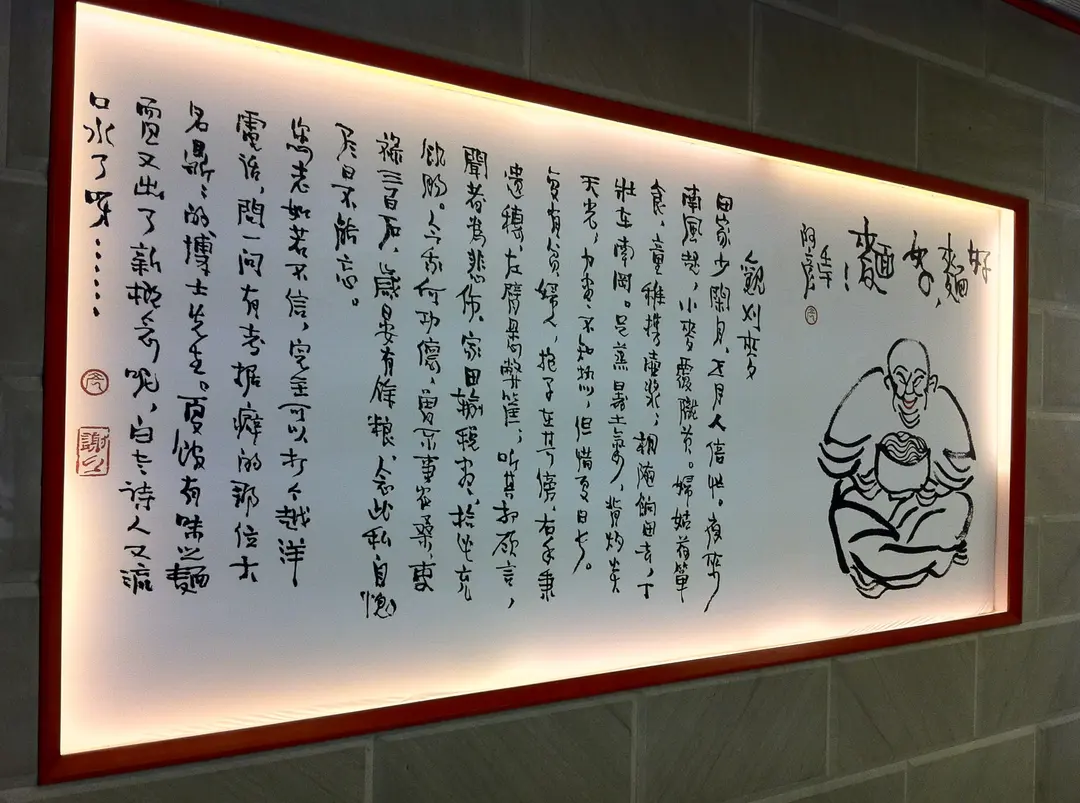 好麵
觀刈麥
田家少閑月，五月人倍忙。夜來
南風起，小麥覆隴黃。婦姑荷簞
食，童稚携壺漿；相隨餉田去，丁
壯在南岡。足蒸暑土氣，背灼炎
天光，力盡不知熱，但惜夏日長。
復有貧婦人，抱子在其傍，右手秉
遺穗，左臂懸弊筐，听其相顧言，
聞者為悲傷。家田輸稅盡，拾此充
飢腸。今我何功德，曾不事農桑，吏
祿三百石，歲晏有餘糧，念此私自愧
尽日不能忘。
您老如若不信，完全可以打个越洋
電话，問一問有考据癖的那位大
名鼎鼎的博士先生。有味之麵
又出了新概念呢，白老詩人又流
口水了呀……